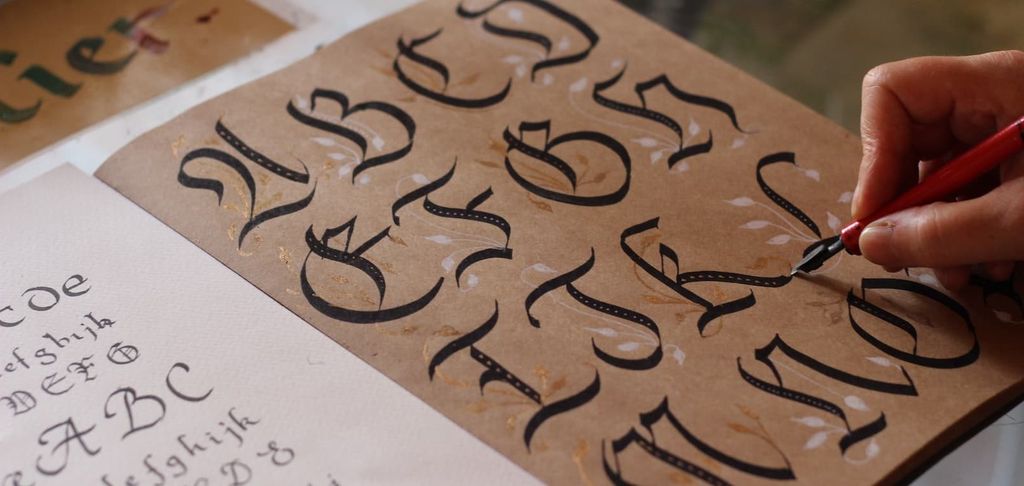 tier
A B C D
E F G H
I J K L
M N O
cde
efghijk
DEFG
ABC
efghijk
DE